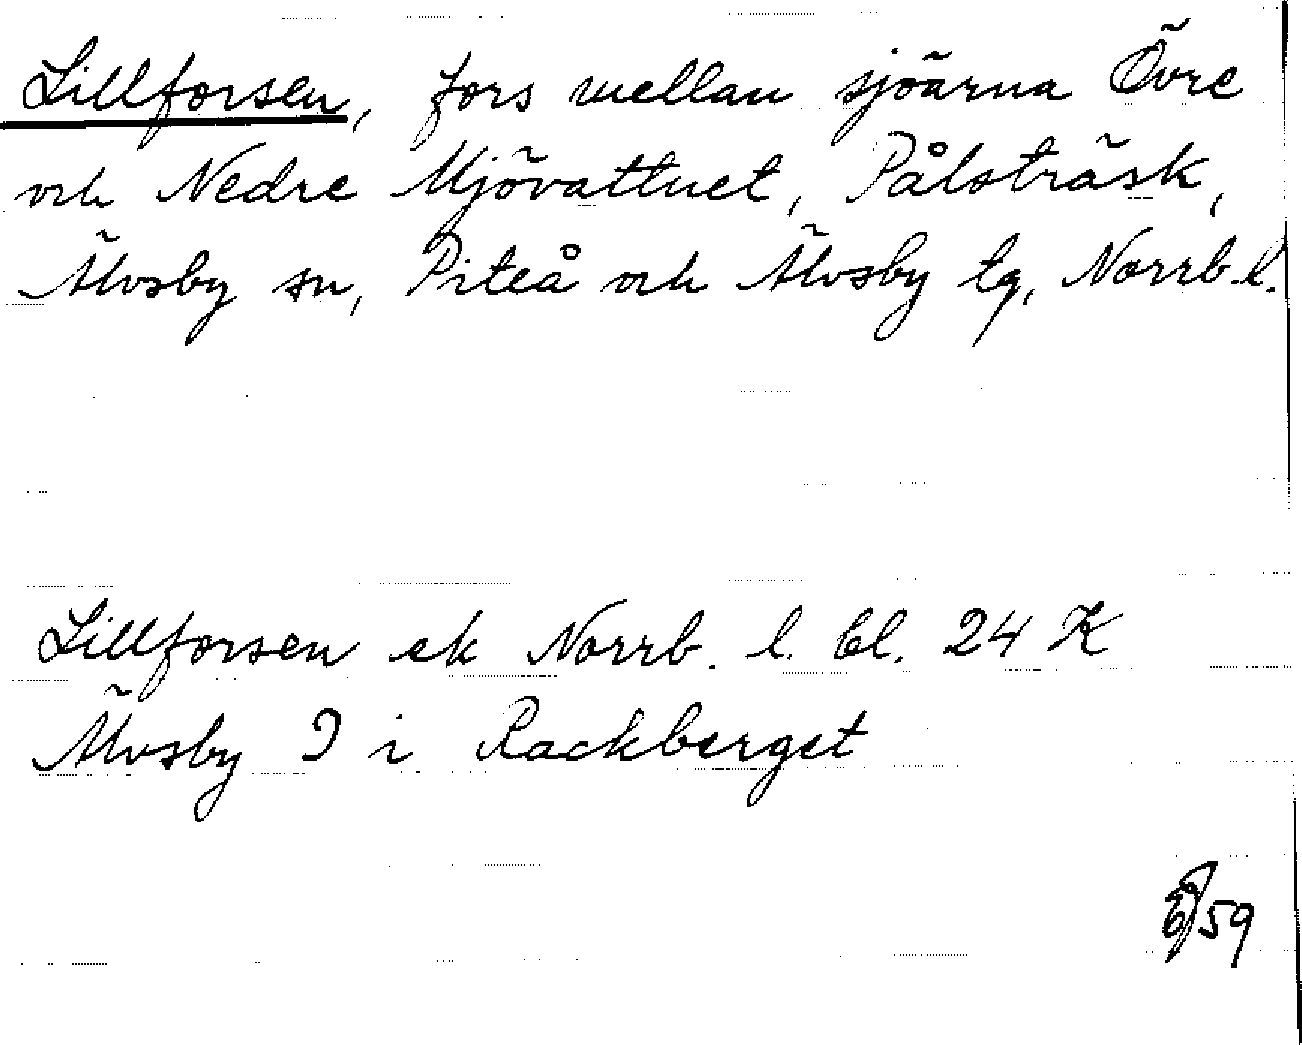 Lillforsen, fors mellan sjöarna Övre
och Nedre Mjövattnet, Pålsträsk,
Älvsby sn, Piteå och Älvsby tg, Norrb. l.
Lillforsen ek Norrb. l. bl. 24 K
Älvsby I i Rackberget
59